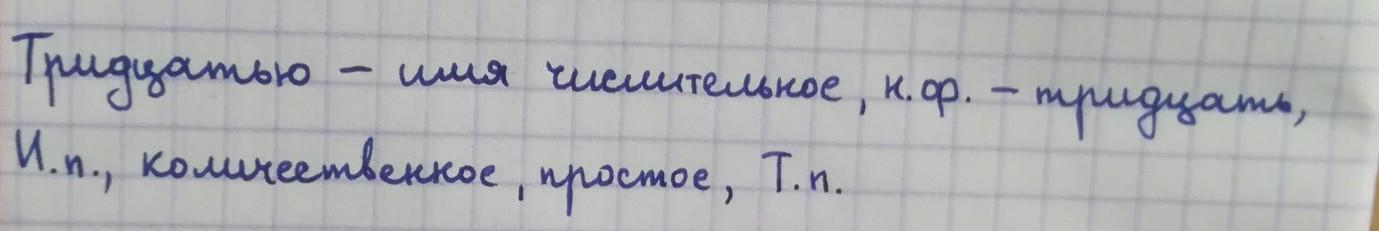 Тридцатью – имя числительное, н.ф. – тридцать,
И.п., количественное, простое, Т.п.